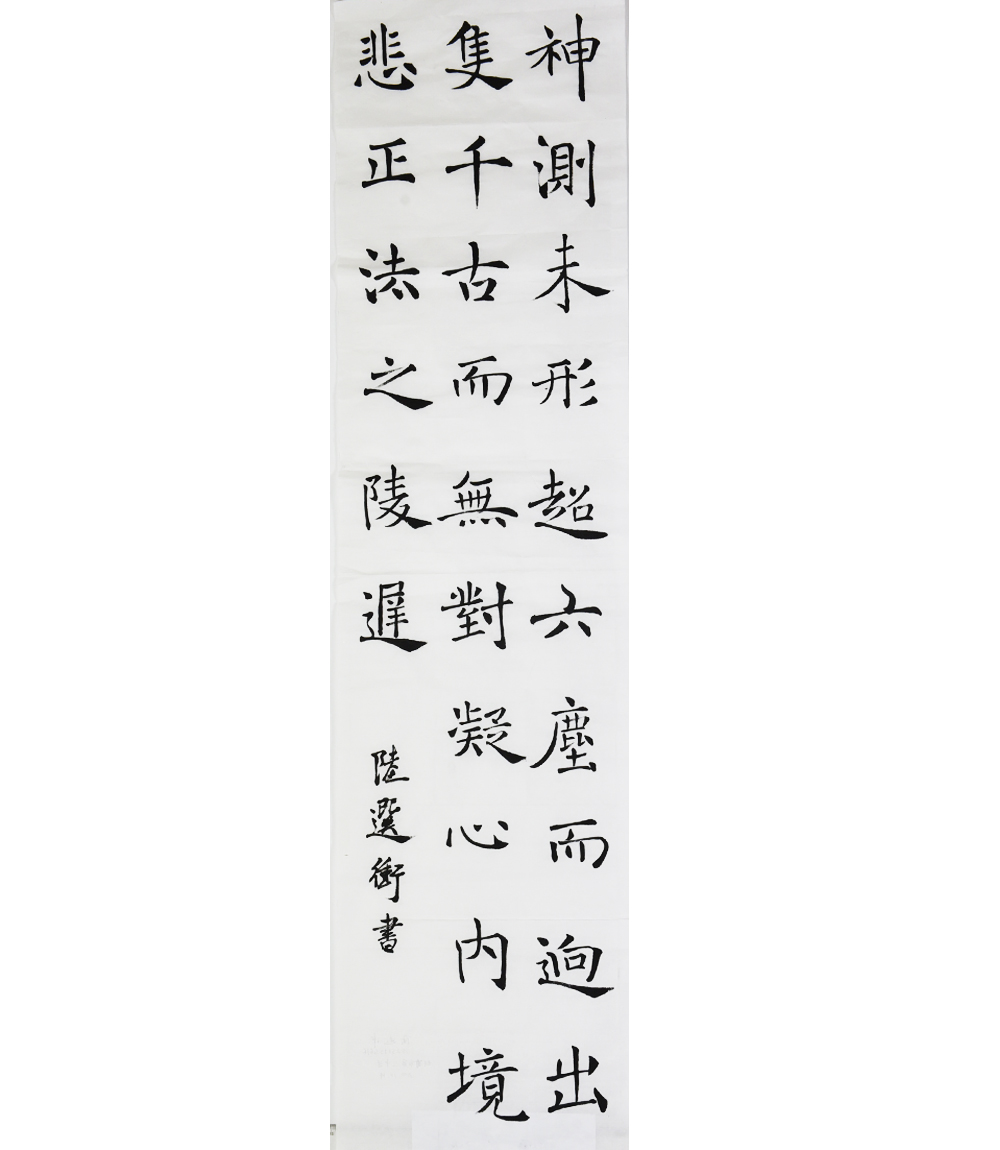 神測未形超六塵而迥出
隻千古而無對凝心内境
悲正法之陵遲
陸選衝書